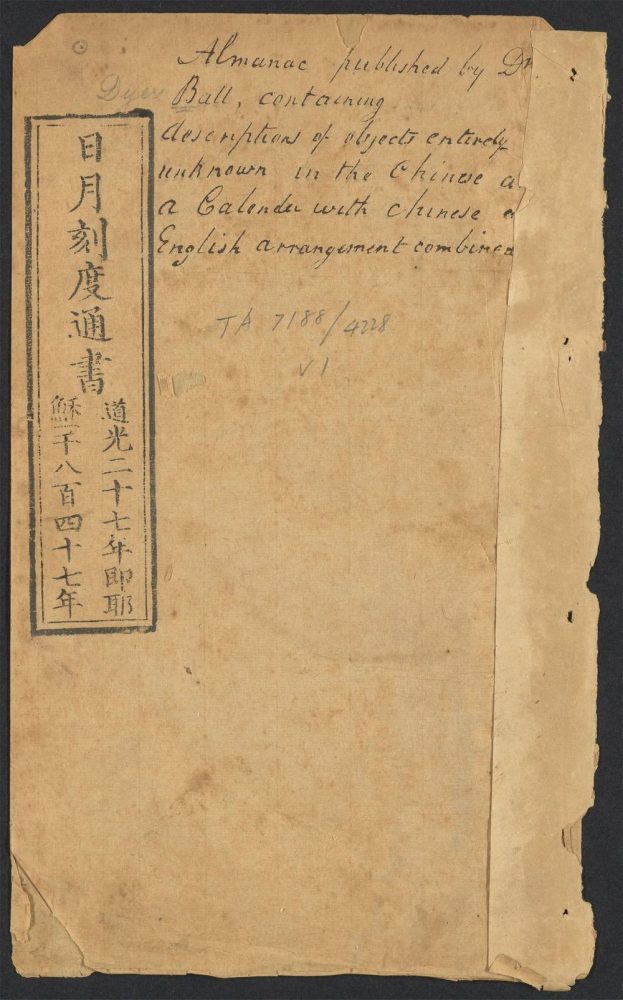 Almanac published by Dr.
Dyer Ball, containing
descriptions of objects entirely
unknown in the Chinese
a Calender with chinese
English arrangement combined
TA 7188/4228
V1
日月刻度通書
道光二十七年即耶
穌一千八百四十七年